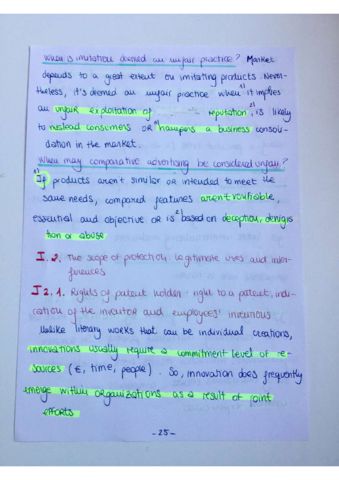 When is imitation deemed an unfair practice? Market
depends to a great extent on imitating products. Never-
theless, it's deemed an unfair practice when 1) it implies
an unfair exploitation of reputation, 2) is likely
to mislead consumers OR 3) hampers a business consou-
dation in the market.
When may comparative advertising be considered unfair?
1) If products aren't similar or intended to meet the
same needs, compared features aren't verifiable,
essential and objective or is 2) based on deception, denigra
tion or abuse
I. 2. The scope of protection. Legitimate uses and inter-
ferences
I 2. 1. Rights of patent holder: right to a patent, indi-
cation of the inventor and employees' inventions
Unlike literary works that can be individual creations,
innovations usually require a commitment level of re-
sources (€, time, people). So, innovation does frequently
emerge within organizations as a result of joint
efforts
- 25 -